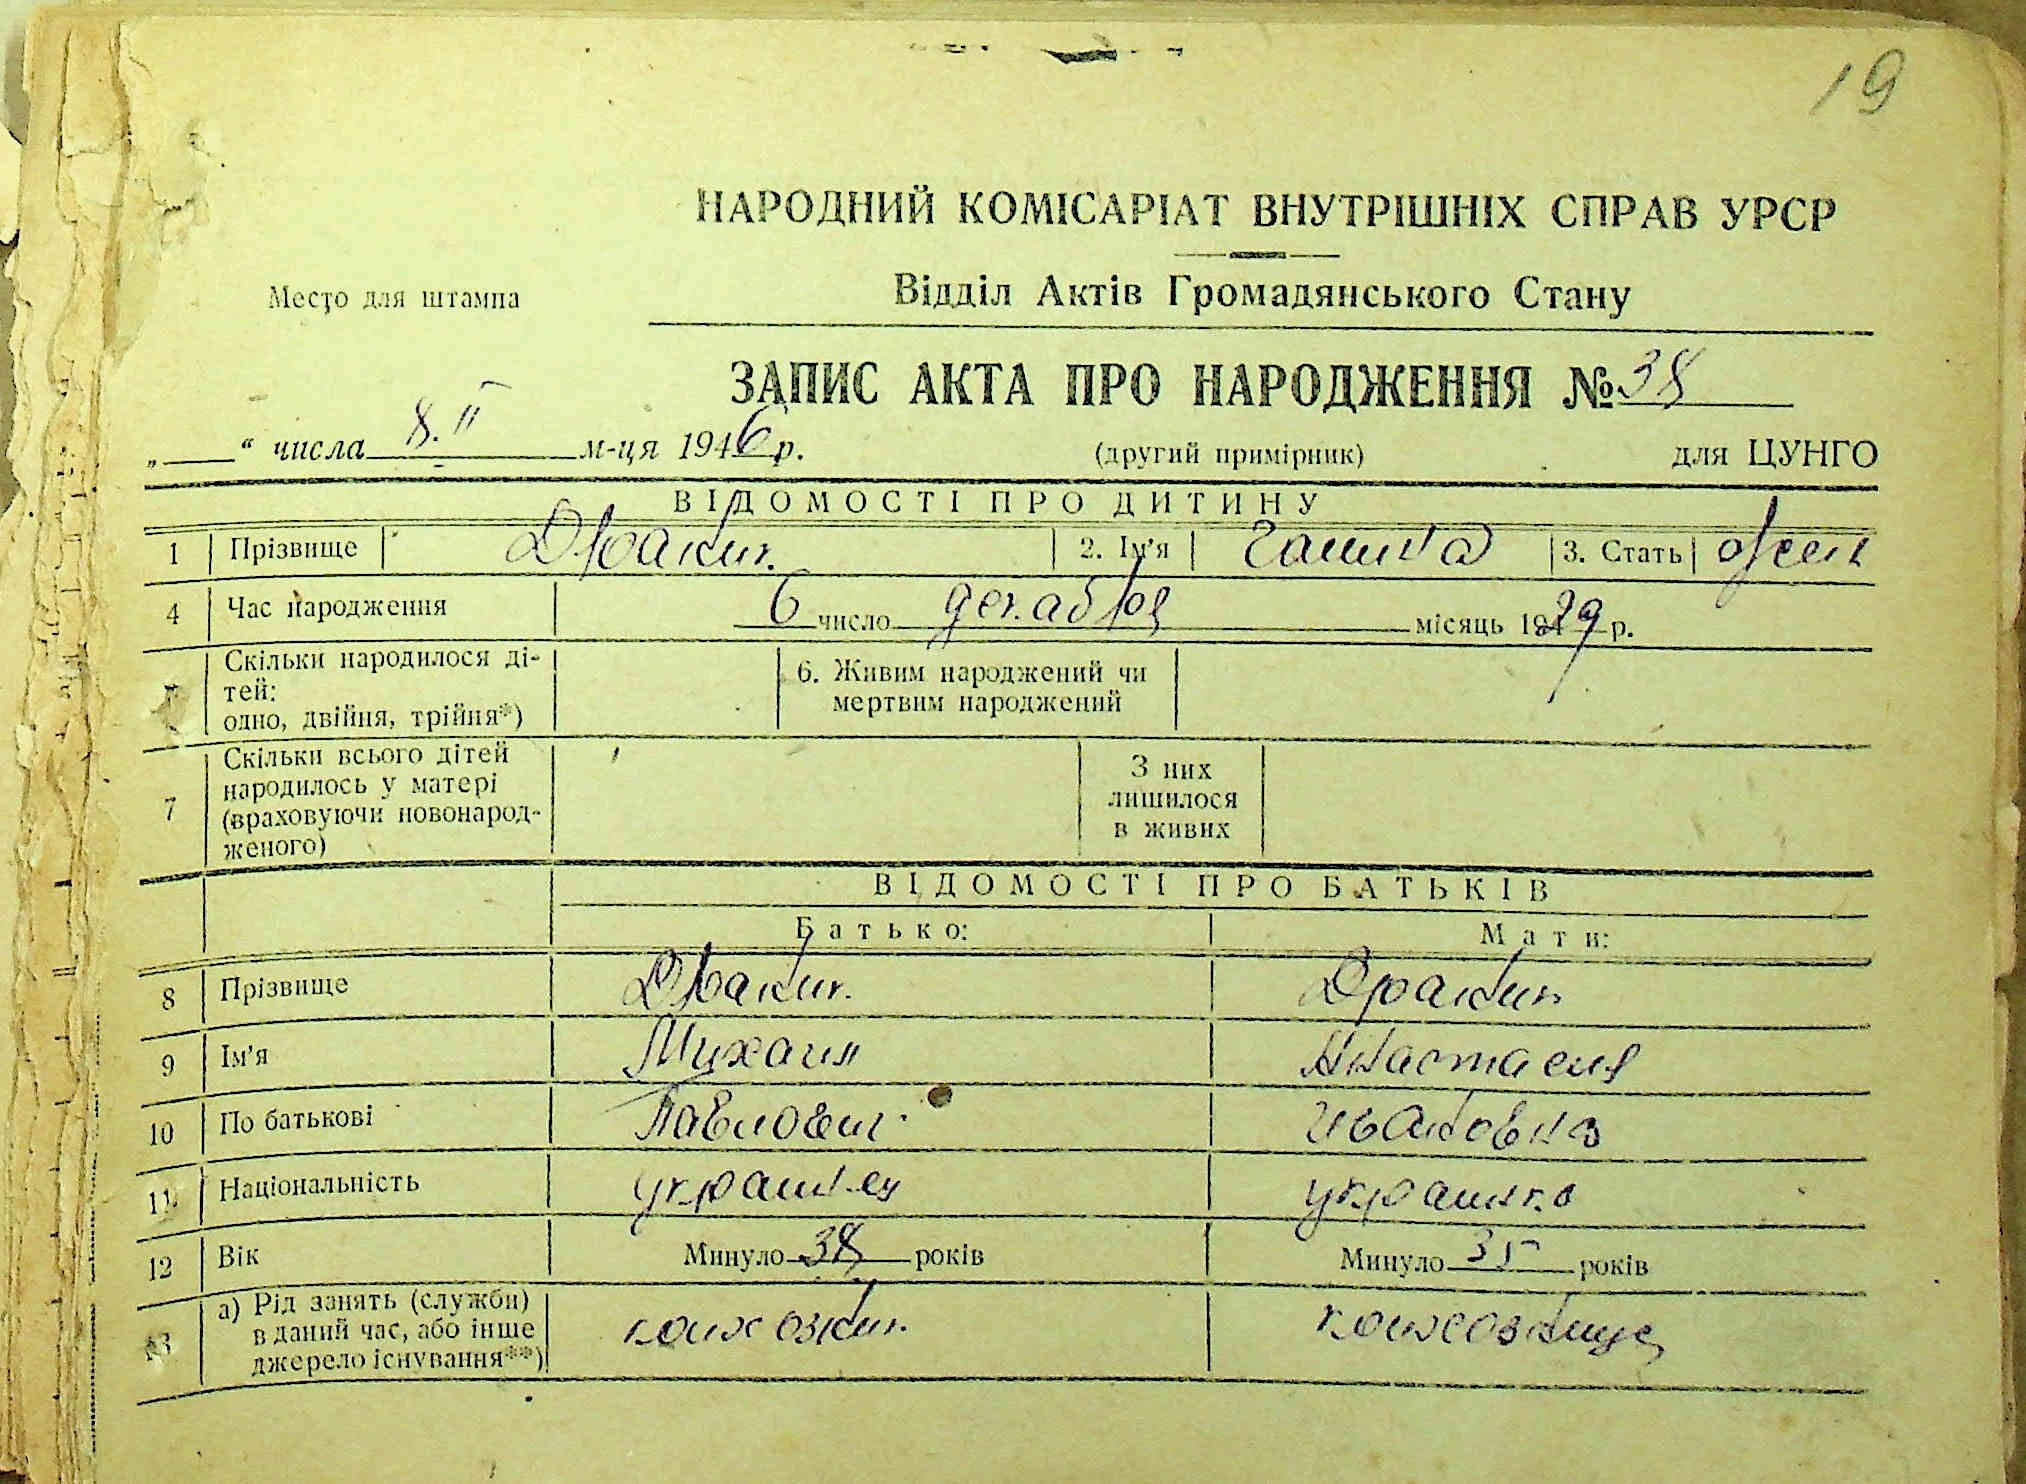 19
НАРОДНИЙ КОМІСАРІАТ ВНУТРІШНІХ СПРАВ УРСР
Место для штампа
Відділ Актів Громадянського Стану
ЗАПИС АКТА ПРО НАРОДЖЕННЯ №38
„ “ числа 8. II м-ця 1946 р. (другий примірник) для ЦУНГО
ВІДОМОСТІ ПРО ДИТИНУ
1 Прізвище 2. Ім'я Галина 3. Стать жен
4 Час народження 6 число декабря місяць 1929 р.
Скільки народилося ді-
тей:
одно, двійня, трійня*)
6. Живим народжений чи
мертвим народжений
7 Скільки всього дітей
народилось у матері
(враховуючи новонарод-
женого)
З них
лишилося
в живих
ВІДОМОСТІ ПРО БАТЬКІВ
Батько: Мати:
8 Прізвище
9 Ім'я Михаил Анастасия
10 По батькові Павлович Ивановна
11 Національність украинец украинка
12 Вік Минуло 38 років Минуло 35 років
13 а) Рід занять (служби)
в даний час, або інше
джерело існування**)
колхозник колхозница